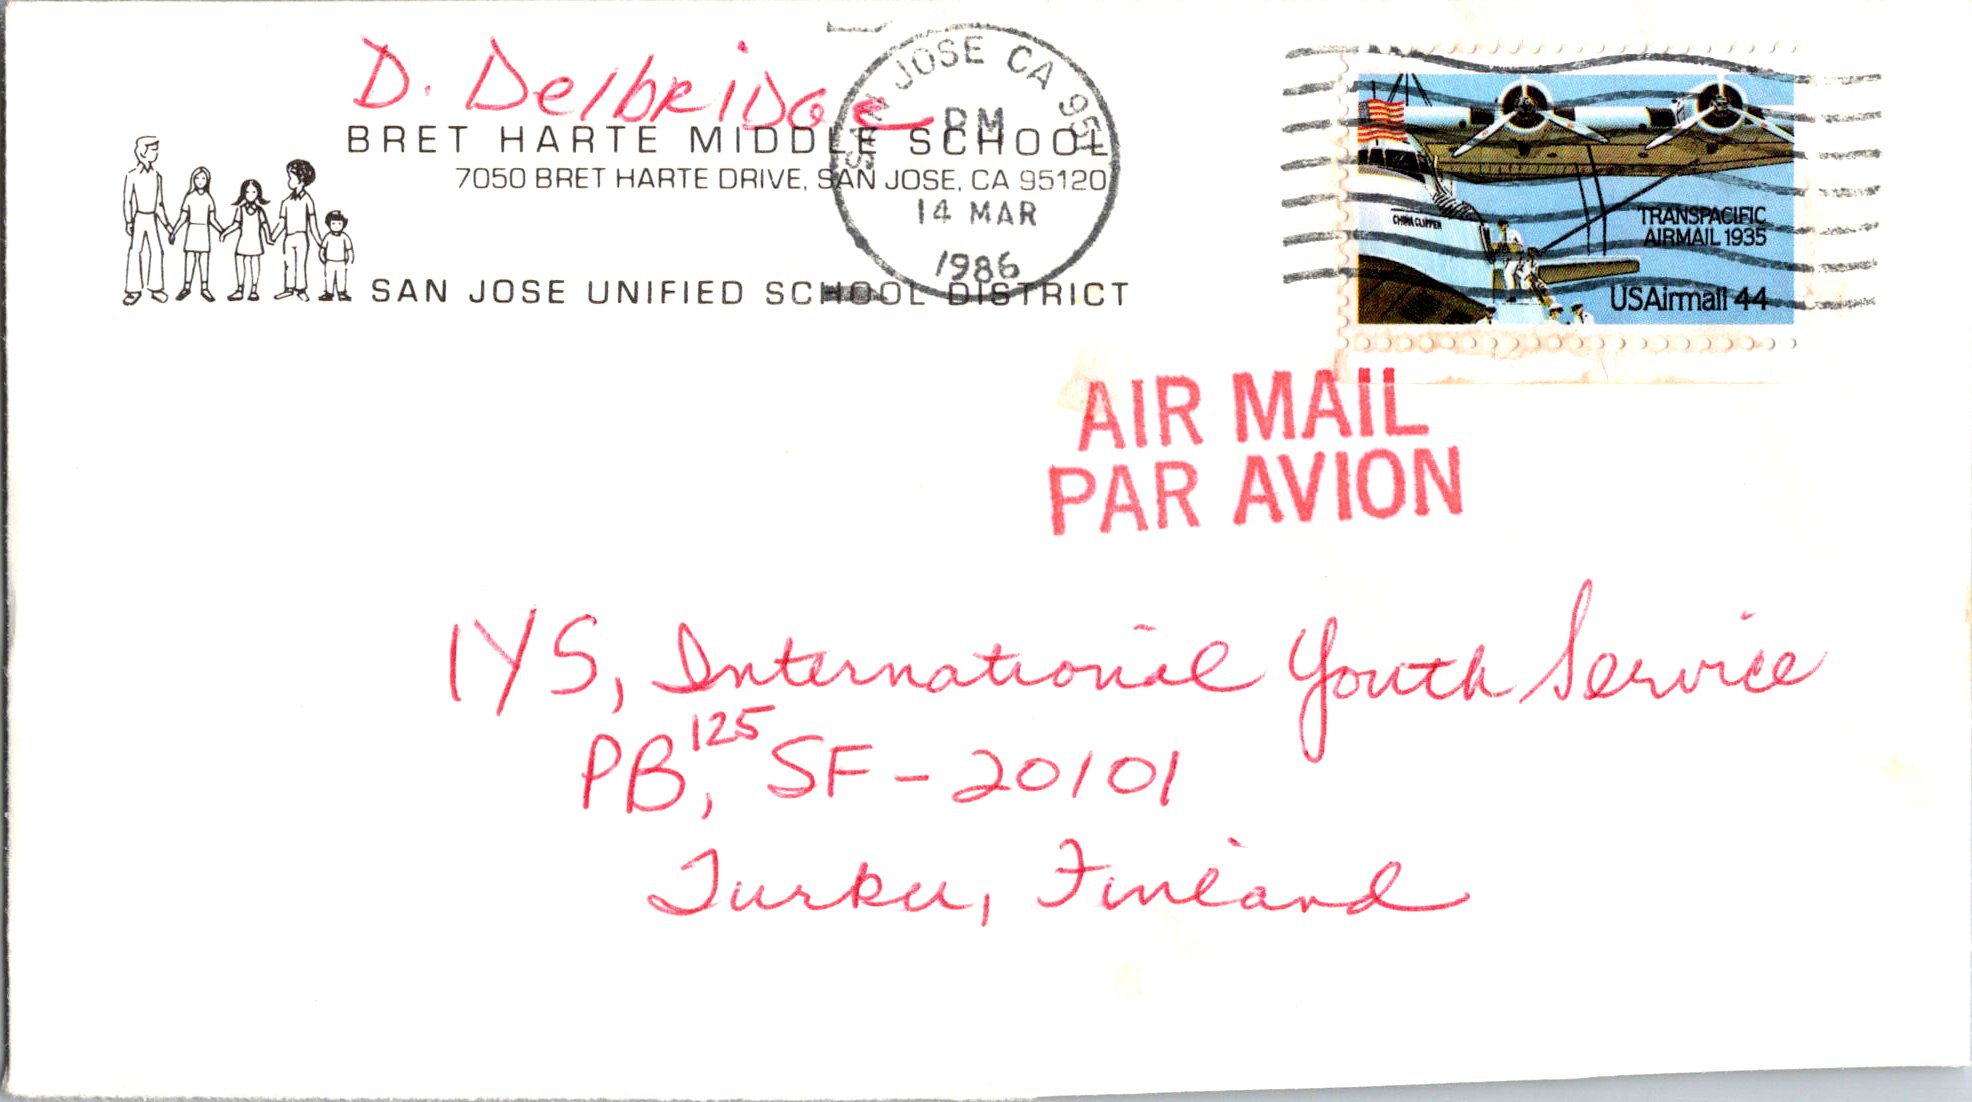 D. Delbridge
BRET HARTE MIDDLE SCHOOL
7050 BRET HARTE DRIVE, SAN JOSE, CA 95120
SAN JOSE UNIFIED SCHOOL DISTRICT
SAN JOSE CA 951
PM
14 MAR
1986
CHINA CLIPPER
TRANSPACIFIC
AIRMAIL 1935
USAirmail 44
AIR MAIL
PAR AVION
IYS, International Youth Service
PB 125, SF-20101
Turku, Finland